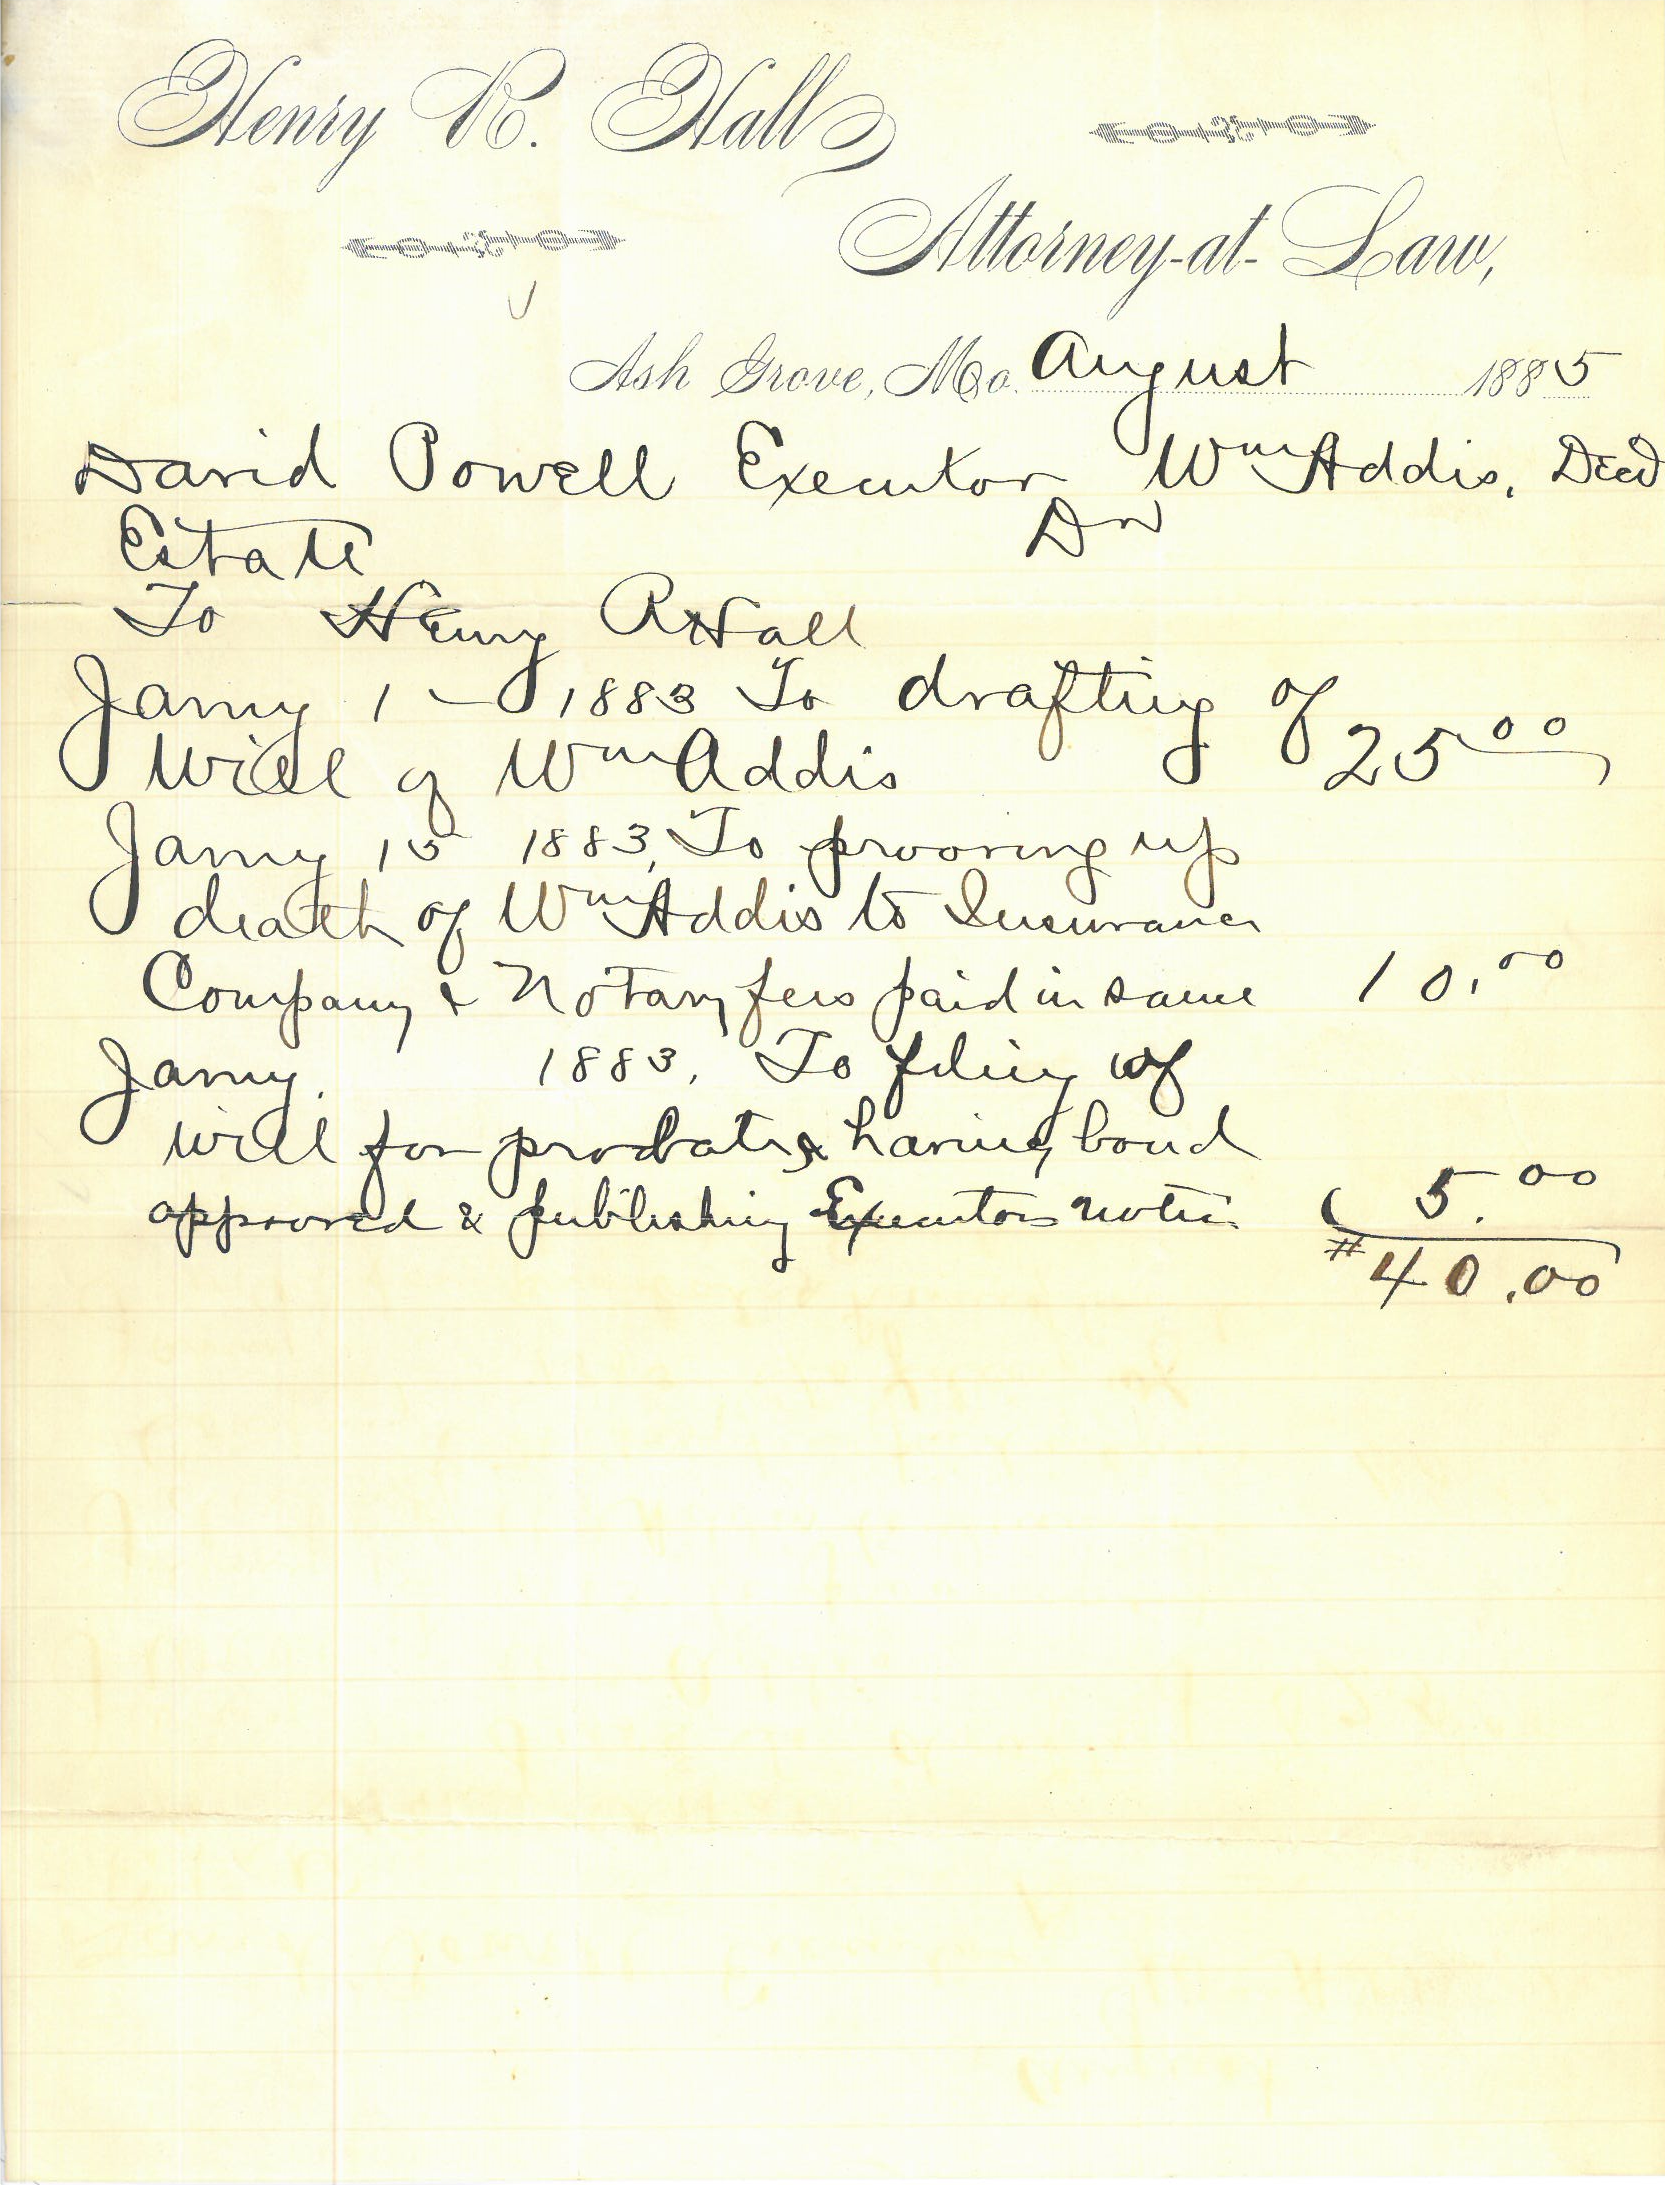 Henry R. Hall
Attorney-at-Law,
Ash Grove, Mo. August 1885
David Powell Executor Wm Addis, Decd
Estate Dr
To Henry R Hall
Jany 1 - 1883 To drafting of
Will of Wm Addis 25 00
Jany 15 1883, To prooving up
death of Wm Addis to Insurance
Company & Notary fees paid in same 10.00
Jany. 1883, To filing of
will for probate & having bond
approved & publishing Executors notice 5.00
$40.00